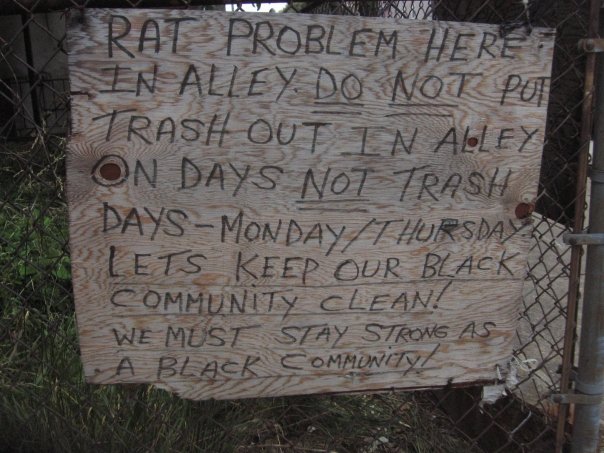 RAT PROBLEM HERE
IN ALLEY. DO NOT PUT
TRASH OUT IN ALLEY
ON DAYS NOT TRASH
DAYS-MONDAY/THURSDAY
LETS KEEP OUR BLACK
COMMUNITY CLEAN!
WE MUST STAY STRONG AS
A BLACK COMMUNITY!